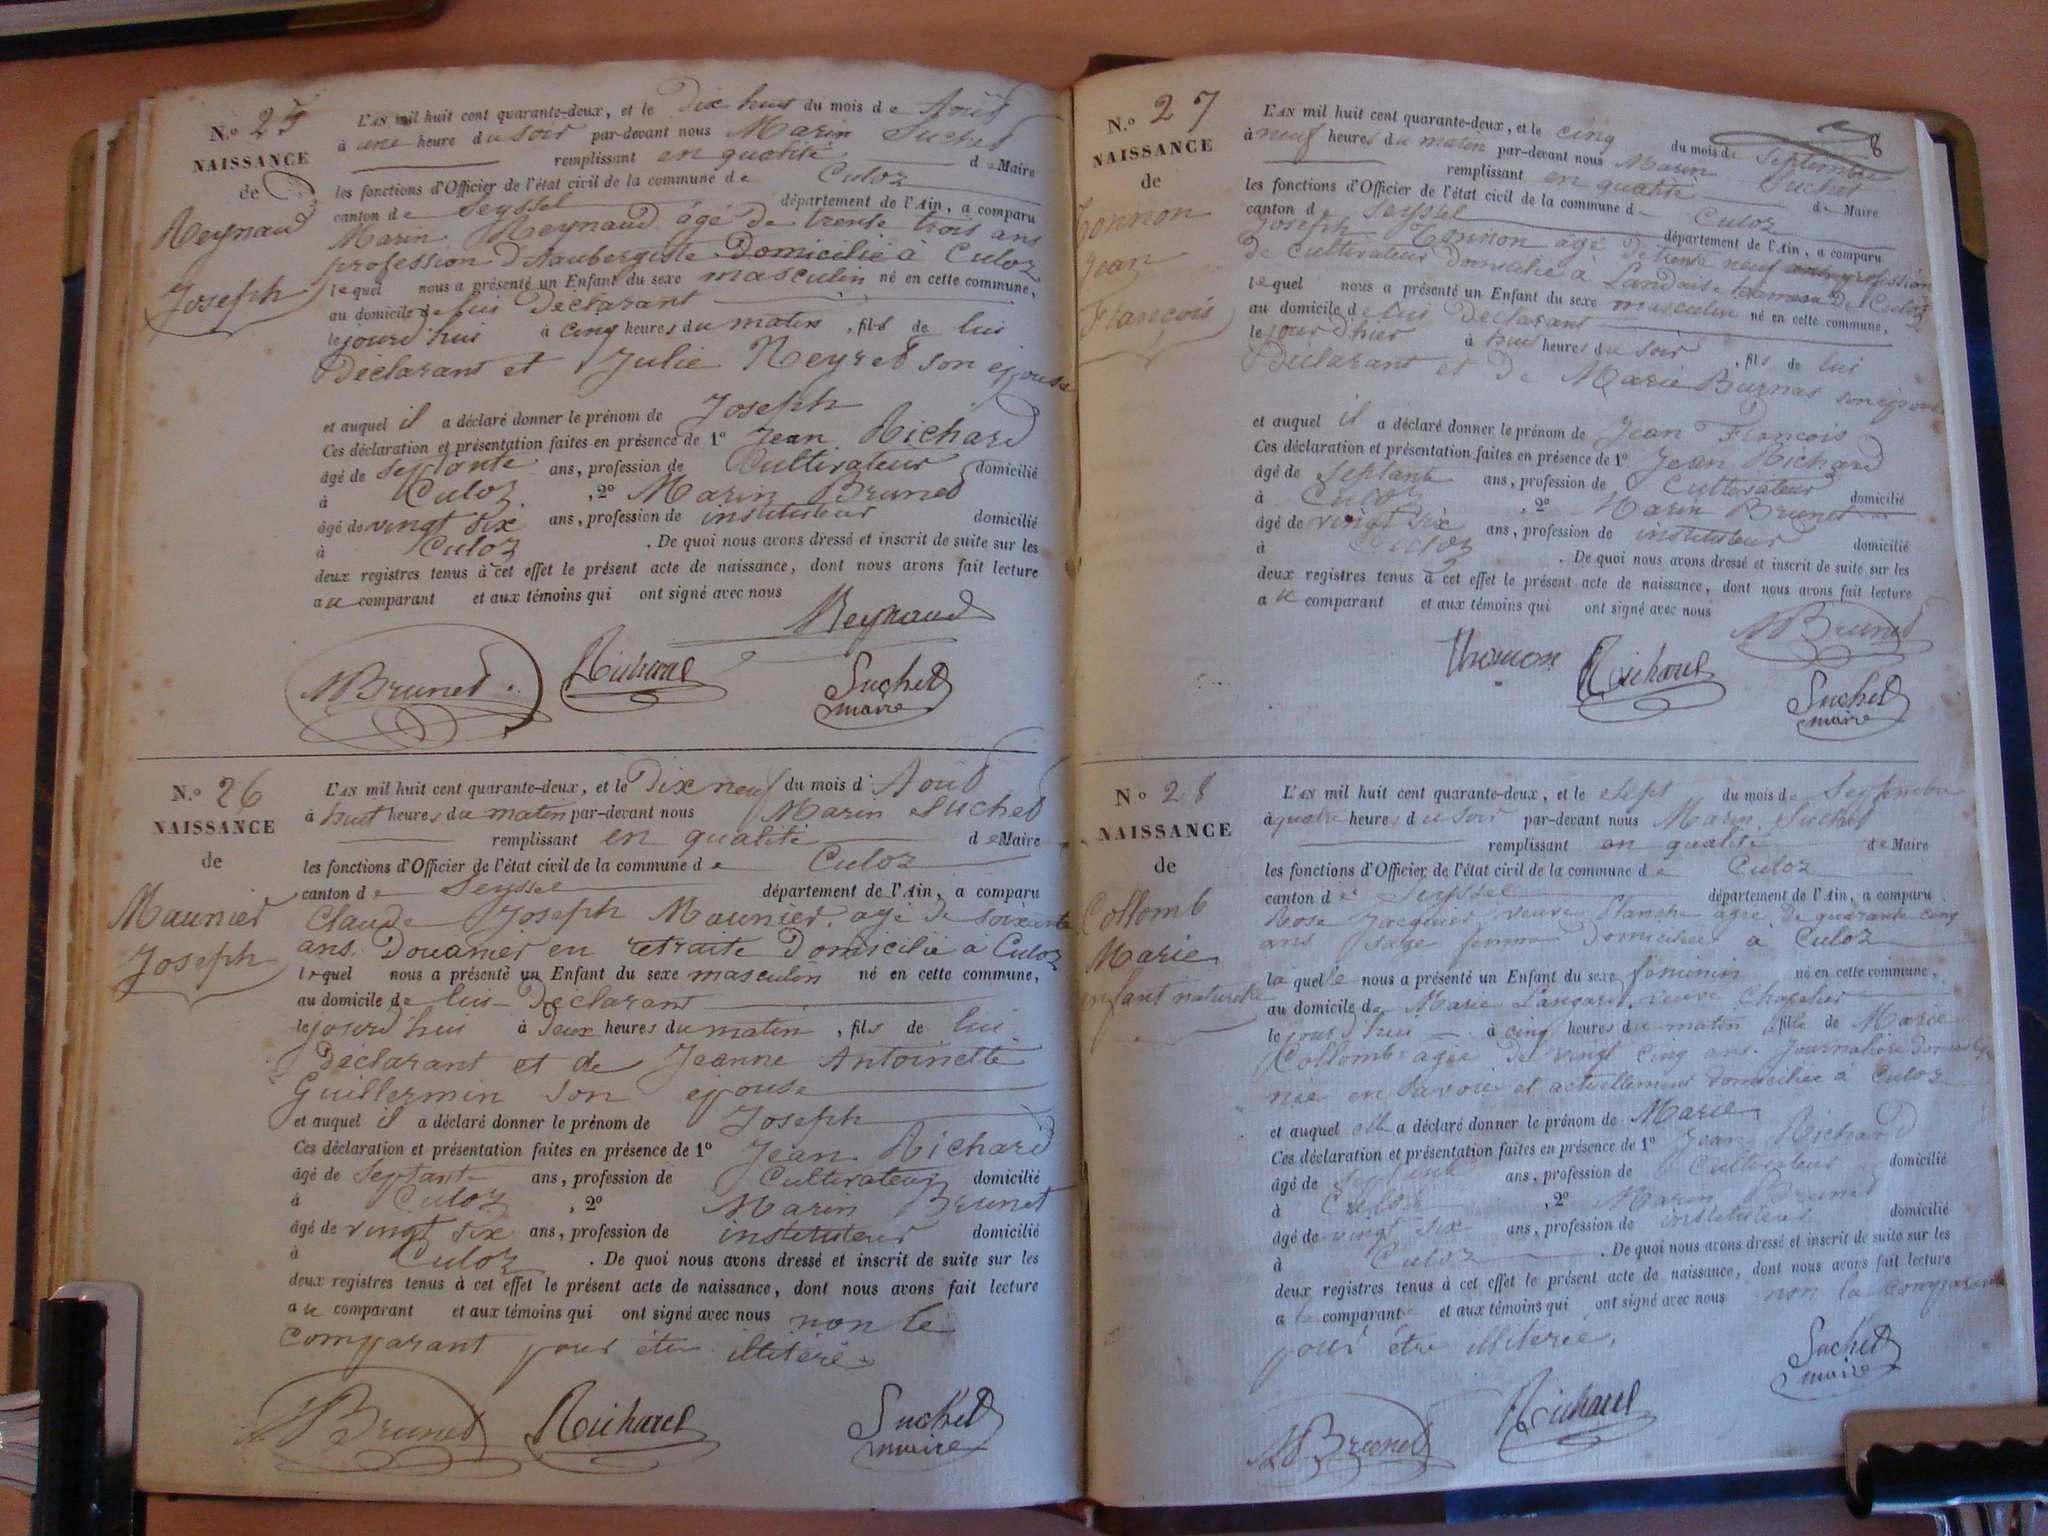 N.o 25
NAISSANCE
de
Reynaud
Joseph
L'AN mil huit cent quarante-deux, et le Dix huit du mois de Août
à une heure du soir par-devant nous Marin Suchet
remplissant en qualité de Maire
les fonctions d'Officier de l'état civil de la commune de Culoz
canton de Seyssel département de l'Ain, a comparu
Marin Reynaud âgé de trente trois ans
profession d'Aubergiste Domicilié à Culoz
lequel nous a présenté un Enfant du sexe masculin né en cette commune,
au domicile de lui Déclarant
le jourd'hui à cinq heures du matin, fils de lui
Déclarant et Julie Neyret son epouse
et auquel il a déclaré donner le prénom de Joseph
Ces déclaration et présentation faites en présence de 1o Jean Richard
âgé de septante ans, profession de Cultivateur domicilié
à Culoz, 2o Marin Brunet
âgé de vingt six ans, profession de instituteur domicilié
à Culoz. De quoi nous avons dressé et inscrit de suite sur les
deux registres tenus à cet effet le présent acte de naissance, dont nous avons fait lecture
au comparant et aux témoins qui ont signé avec nous
Reynaud
MBrunet Richard Suchet
maire
N.o 26
NAISSANCE
de
Maunier
Joseph
L'AN mil huit cent quarante-deux, et le Dix neuf du mois d' Août
à huit heures du matin par-devant nous Marin Suchet
remplissant en qualité de Maire
les fonctions d'Officier de l'état civil de la commune de Culoz
canton de Seyssel département de l'Ain, a comparu
Claude Joseph Maunier, âgé de soixante
ans. Douanier en retraite Domicilié à Culoz
lequel nous a présenté un Enfant du sexe masculin né en cette commune,
au domicile de lui Déclarant
le jourd'hui à Deux heures du matin, fils de lui
Declarant et de Jeanne Antoinette
Guillermin son epouse
et auquel il a déclaré donner le prénom de Joseph
Ces déclaration et présentation faites en présence de 1o Jean Richard
âgé de Septante ans, profession de Cultivateur domicilié
à Culoz, 2o Marin Brunet
âgé de vingt six ans, profession de instituteur domicilié
à Culoz. De quoi nous avons dressé et inscrit de suite sur les
deux registres tenus à cet effet le présent acte de naissance, dont nous avons fait lecture
au comparant et aux témoins qui ont signé avec nous non le
comparant pour être illitéré
MBrunet Richard Suchet
maire
8
N.o 27
NAISSANCE
de
Tonnon
Jean
François
L'AN mil huit cent quarante-deux, et le cinq du mois de Septembre
à neuf heures du matin par-devant nous Marin Suchet
remplissant en qualité de Maire
les fonctions d'Officier de l'état civil de la commune de Culoz
canton d Seyssel département de l'Ain, a comparu
Joseph Tonnon âgé de trente neuf ans profession
de cultivateur Domicilié à Landaise de Culoz
lequel nous a présenté un Enfant du sexe masculin né en cette commune,
au domicile de lui Déclarant
le jour d'hier à huit heures du soir, fils de lui
Déclarant et de Marie Burnas son epouse
et auquel il a déclaré donner le prénom de Jean François
Ces déclaration et présentation faites en présence de 1o Jean Richard
âgé de Septante ans, profession de Cultivateur domicilié
à Culoz, 2o Marin Brunet
âgé de vingt six ans, profession de instituteur domicilié
à Culoz. De quoi nous avons dressé et inscrit de suite sur les
deux registres tenus à cet effet le présent acte de naissance, dont nous avons fait lecture
au comparant et aux témoins qui ont signé avec nous
MBrunet
Richard
Suchet
maire
N.o 28
NAISSANCE
de
Collomb
Marie
enfant naturelle
L'AN mil huit cent quarante-deux, et le sept du mois de Septembre
à quatre heures du soir par-devant nous Marin Suchet
remplissant en qualité de Maire
les fonctions d'Officier de l'état civil de la commune de Culoz
canton de Seyssel département de l'Ain, a comparu
Rose Jacquier veuve âgée de quarante cinq
ans sage femme Domiciliée à Culoz
laquelle nous a présenté un Enfant du sexe feminin né en cette commune,
au domicile de Marie veuve
le jour d'hui à cinq heures du matin fille de Marie
Collomb agée de vingt cinq ans. Journalière
née en Savoie et actuellement domiciliée à Culoz
et auquel elle a déclaré donner le prénom de Marie
Ces déclaration et présentation faites en présence de 1o Jean Richard
âgé de septante ans, profession de Cultivateur domicilié
à Culoz, 2o Marin Brunet
âgé de vingt six ans, profession de instituteur domicilié
à Culoz. De quoi nous avons dressé et inscrit de suite sur les
deux registres tenus à cet effet le présent acte de naissance, dont nous avons fait lecture
a la comparante et aux témoins qui ont signé avec nous non la comparante
pour être illiterée,
Suchet
maire
MBrunet Richard